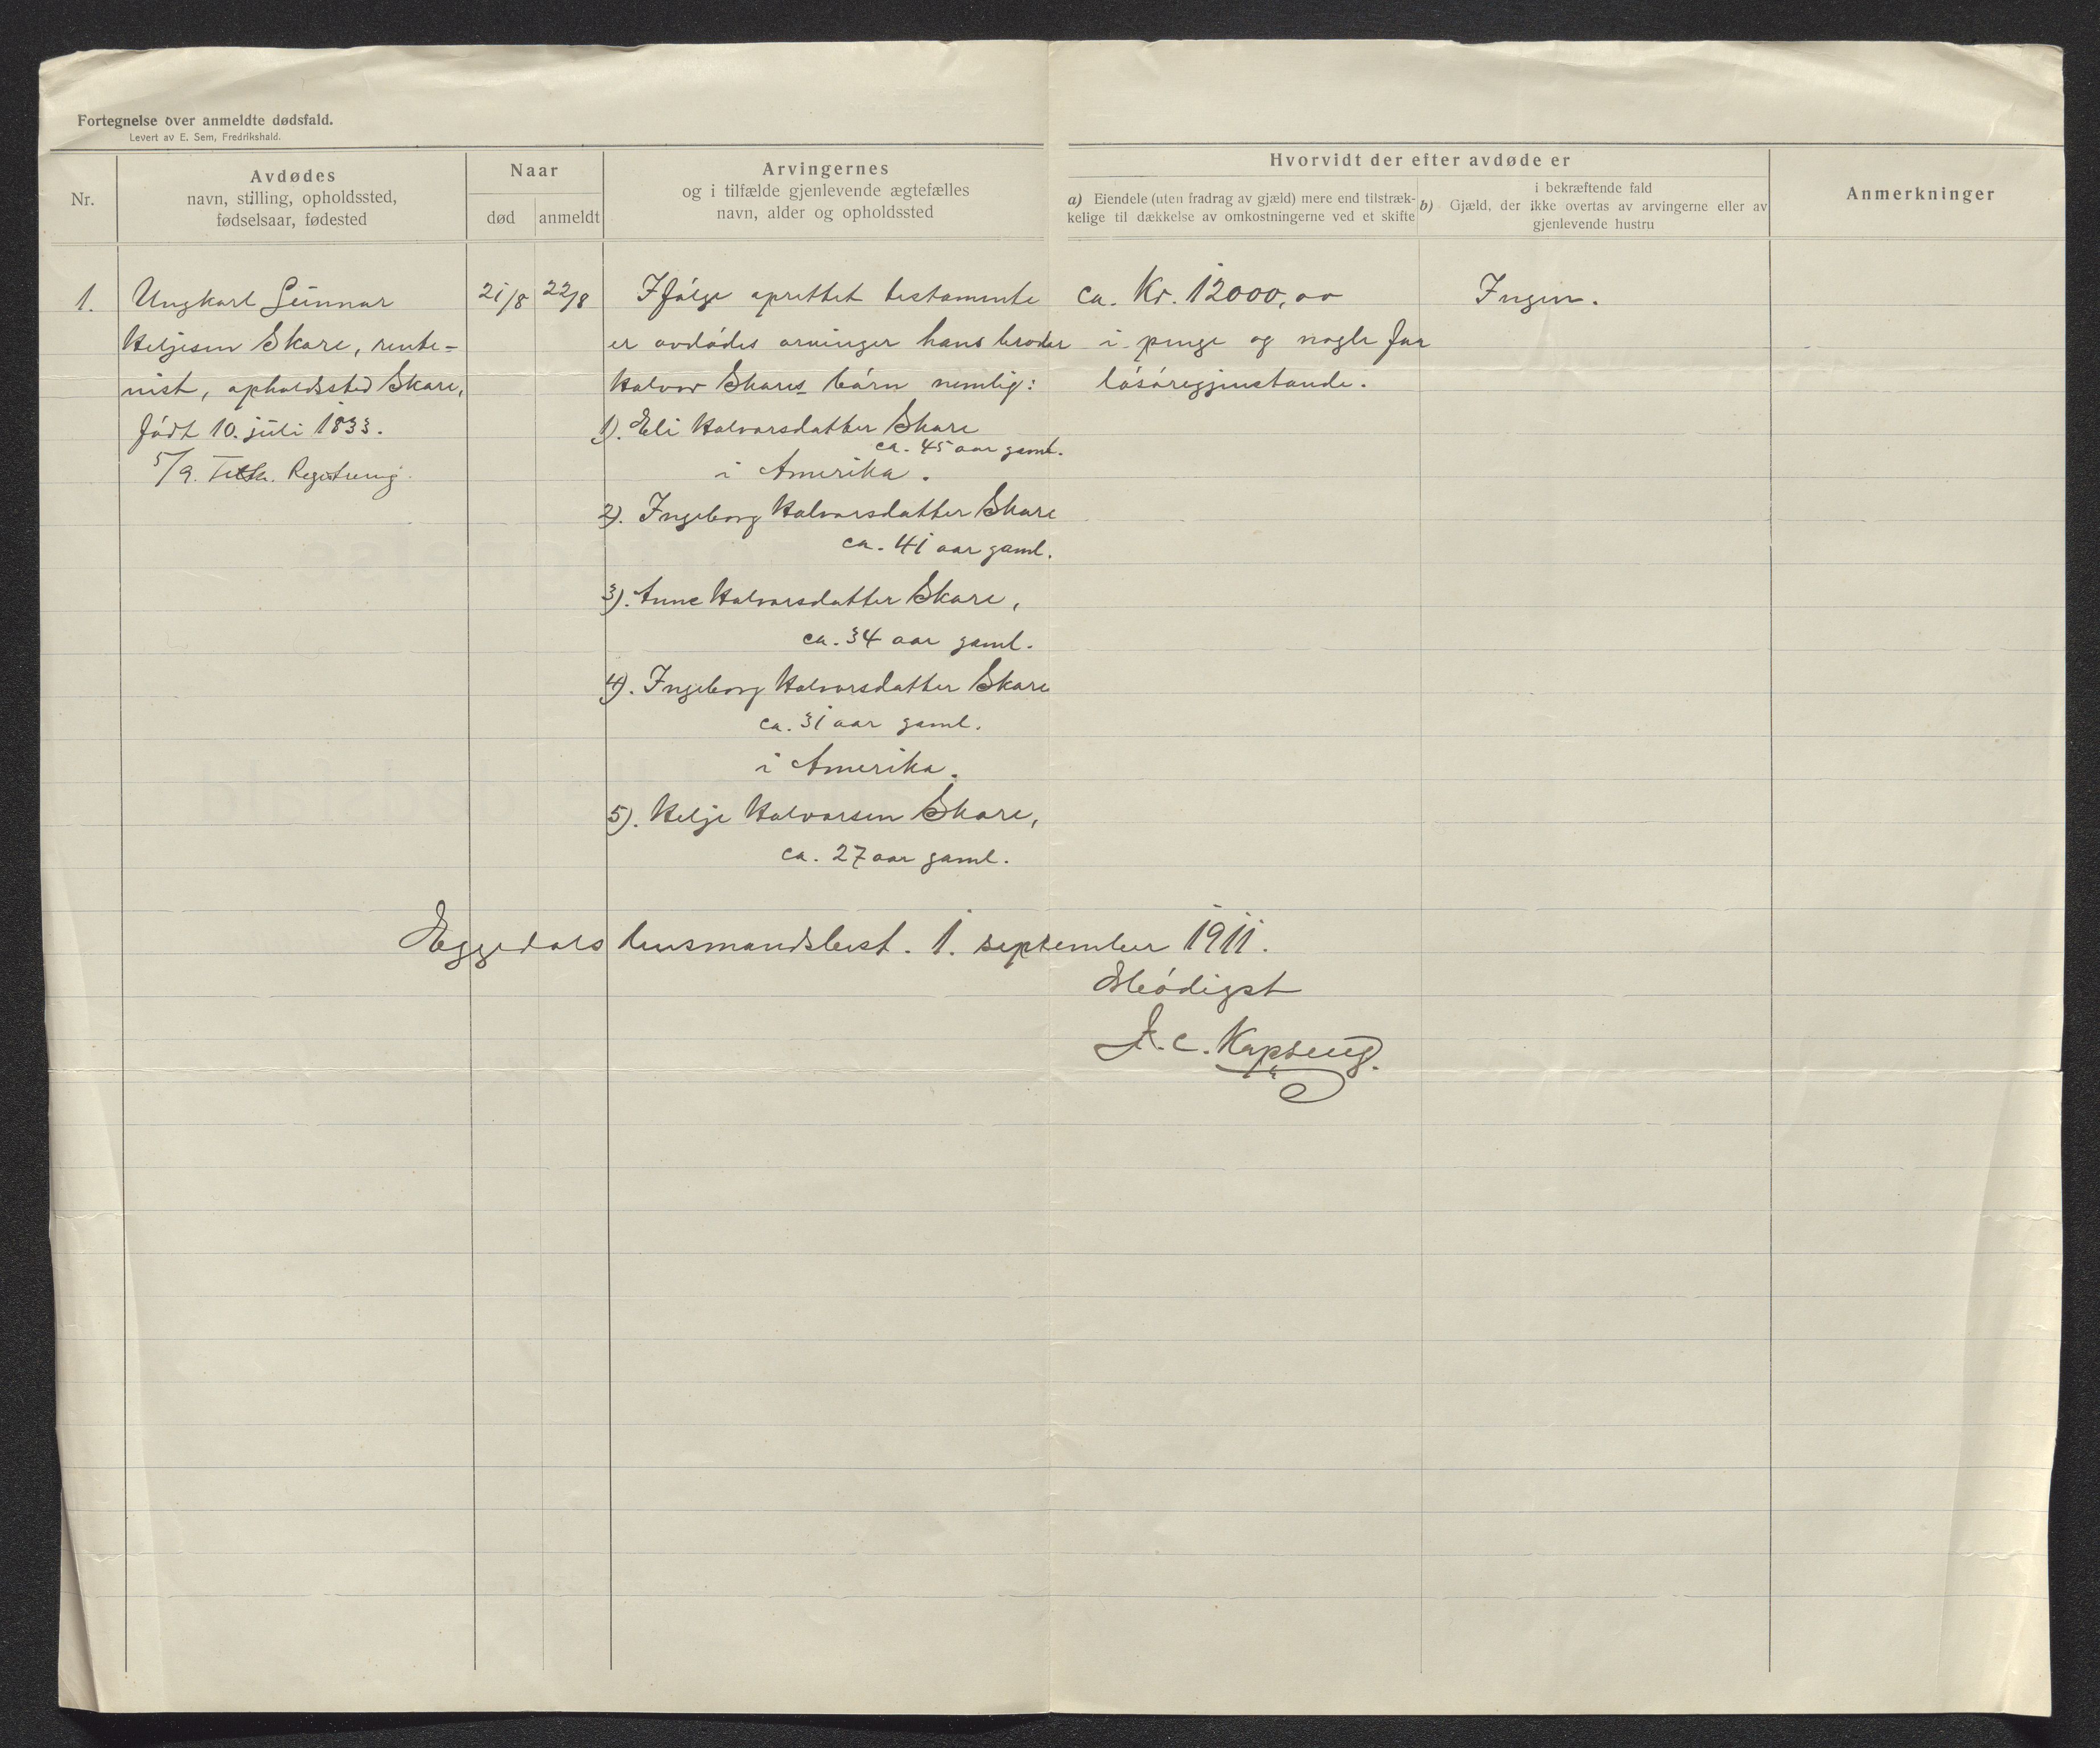 Fortegnelse over anmeldte dødsfald.
Levert av E. Sem, Fredrikshald.
Nr.
Avdødes
navn, stilling, opholdssted,
fødselsaar, fødested
Naar
død
anmeldt
Arvingernes
og i tilfælde gjenlevende ægtefælles
navn, alder og opholdssted
Hvorvidt der efter avdøde er
a) Eiendele (uten fradrag av gjæld) mere end tilstræk-
kelige til dækkelse av omkostningerne ved et skifte
i bekræftende fald
b) Gjæld, der ikke overtas av arvingerne eller av
gjenlevende hustru
Anmerkninger
1.
Ungkarl Gunnar
Heljesen Skare, rente-
nist, opholdssted Skare,
født 10. juli 1833.
5/9. Registrering.
21/8
22/8
Ifølge oprettet testamente
er avdødes arvinger hans broder
Halvor Skares børn nemlig:
1). Eli Halvorsdatter Skare
ca. 45 aar gaml.
i Amerika.
2). Ingeborg Halvorsdatter Skare
ca. 41 aar gaml.
3). Anne Halvorsdatter Skare,
ca. 34 aar gaml.
4). Ingeborg Halvorsdatter Skare
ca. 31 aar gaml.
i Amerika.
5). Helje Halvorsen Skare,
ca. 27 aar gaml.
ca. Kr. 12000,00
i penge og nogle faa
løsøregjenstande.
Ingen.
Eggedals lensmandsbest. 1. september 1911.
Ærbødigst
A. C. Kopseng.